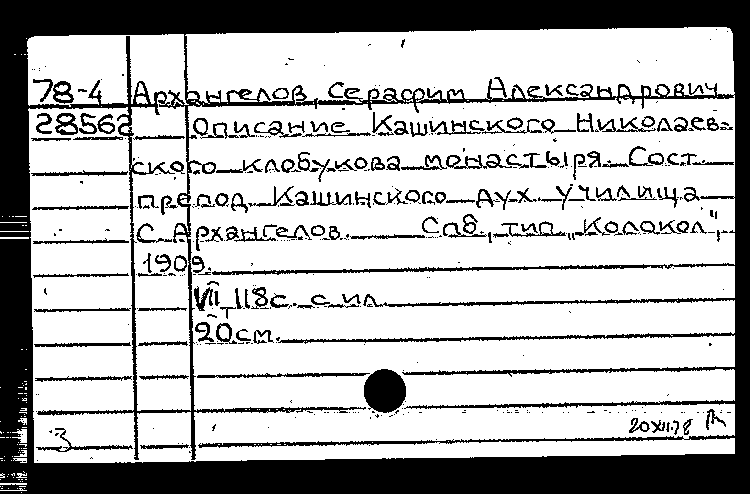 78-4 Архангелов, Серафим Александрович
28562 Описание Кашинского Николаев-
ского клобукова монастыря. Сост.
препод. Кашинского дух. училища
С. Архангелов. Спб, тип. „Колокол",
1909.
VII, 118с. с ил.
20см.
3
20 XII.78